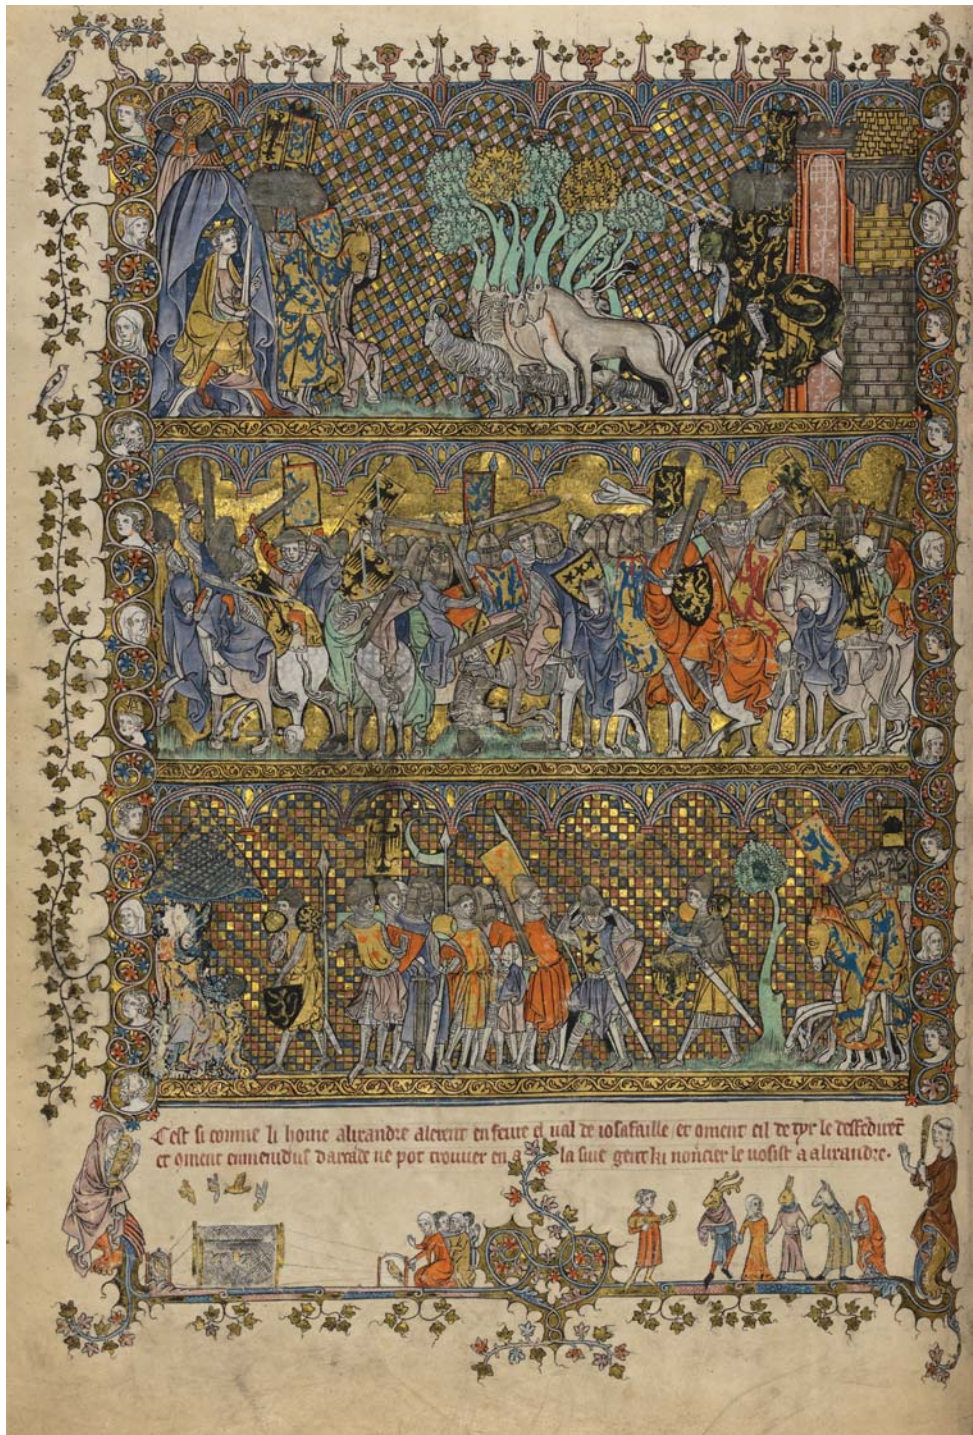 Cest si comme li home alixandre alerent en feure el ual de iosafaille et coment cil de tyr le deffedirent
et coment emmenidus darcade ne pot trouuer en la siue gent ki noncier le uosist a alixandre.